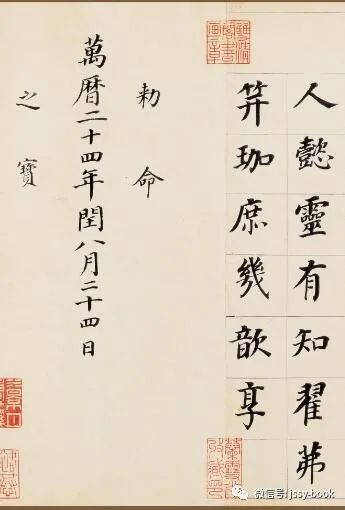 人懿靈有知翟茀
笄珈庶幾歆享
勑命
萬曆二十四年閏八月二十四日
之寶
微信号: jssy-book